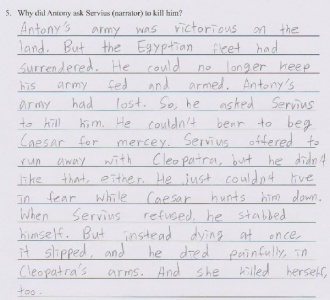 5. Why did Antony ask Servius (narrator) to kill him?
Antony's army was victorious on the
land. But the Egyptian fleet had
surrendered. He could no longer keep
his army fed and armed. Antony's
army had lost. So, he asked Servius
to kill him. He couldn't bear to beg
Caesar for mercey. Servius offered to
run away with Cleopatra, but he didn't
like that, either. He just couldn't live
in fear while Caesar hunts him down.
When Servius refused, he stabbed
himself. But instead dying at once,
it slipped, and he died painfully in
Cleopatra's arms. And she killed herself,
too.